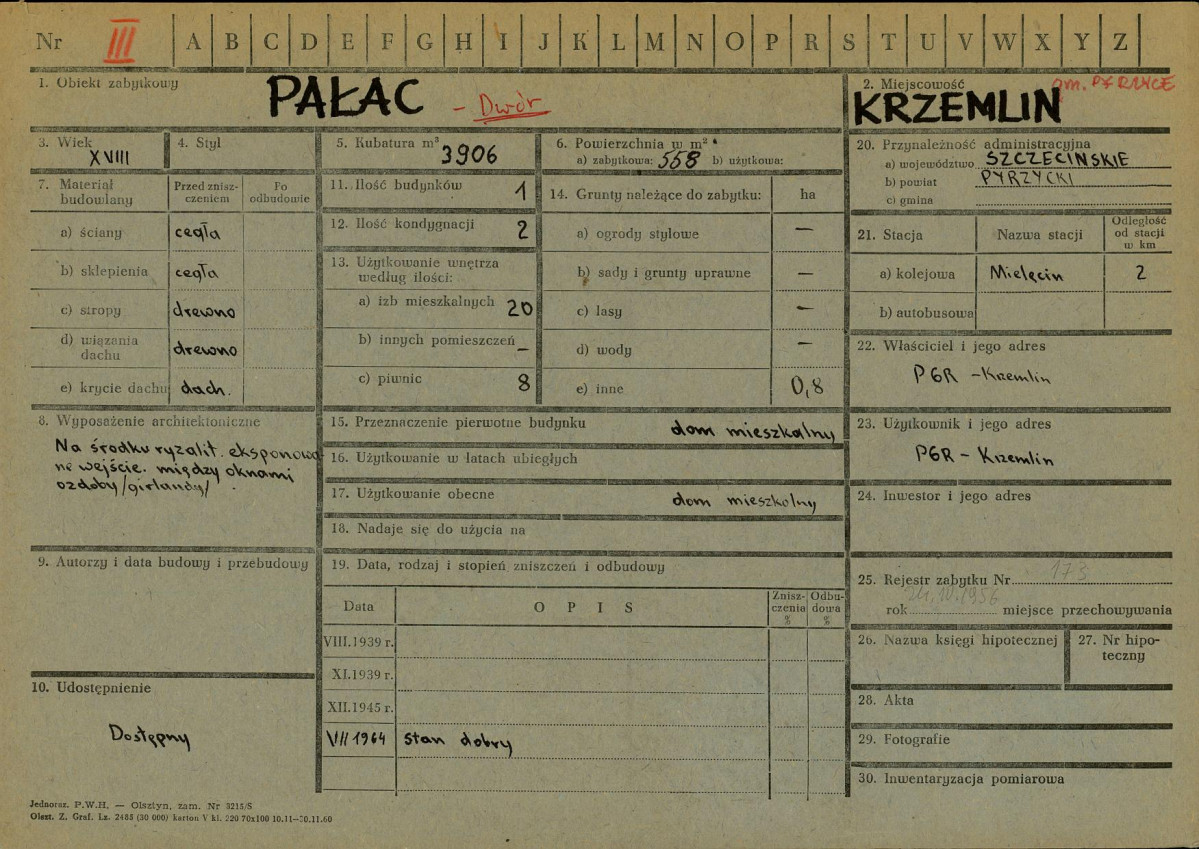 Nr III A B C D E F G H I J K L M N O P R S T U V W X Y Z
1. Obiekt zabytkowy
PAŁAC - Dwór
2. Miejscowość
gm. PYRZYCE
KRZEMLIN
3. Wiek
XVIII
4. Styl
5. Kubatura m³
3906
6. Powierzchnia w m²
a) zabytkowa: 558 b) użytkowa:
7. Materiał budowlany
Przed zniszczeniem
Po odbudowie
a) ściany cegła
b) sklepienia cegła
c) stropy drewno
d) wiązania dachu drewno
e) krycie dachu dach.
8. Wyposażenie architektoniczne
Na środku ryzalit. eksponowa-
ne wejście. między oknami
ozdoby /girlandy/ .
9. Autorzy i data budowy i przebudowy
10. Udostępnienie
Dostępny
11. Ilość budynków 1
12. Ilość kondygnacji 2
13. Użytkowanie wnętrza
według ilości:
a) izb mieszkalnych 20
b) innych pomieszczeń –
c) piwnic 8
14. Grunty należące do zabytku: ha
a) ogrody stylowe —
b) sady i grunty uprawne —
c) lasy —
d) wody —
e) inne 0,8
15. Przeznaczenie pierwotne budynku dom mieszkalny
16. Użytkowanie w latach ubiegłych
17. Użytkowanie obecne dom mieszkalny
18. Nadaje się do użycia na
19. Data, rodzaj i stopień zniszczeń i odbudowy
Data OPIS Zniszczenia % Odbudowa %
VIII.1939 r.
XI.1939 r.
XII.1945 r.
VII 1964 stan dobry
20. Przynależność administracyjna
a) województwo SZCZECIŃSKIE
b) powiat PYRZYCKI
c) gmina
21. Stacja Nazwa stacji Odległość od stacji w km
a) kolejowa Mielęcin 2
b) autobusowa
22. Właściciel i jego adres
PGR - Krzemlin
23. Użytkownik i jego adres
PGR - Krzemlin
24. Inwestor i jego adres
25. Rejestr zabytku Nr 173
rok 24.IV.1956 miejsce przechowywania
26. Nazwa księgi hipotecznej
27. Nr hipo-
teczny
28. Akta
29. Fotografie
30. Inwentaryzacja pomiarowa
Jednoraz. P.W.H. — Olsztyn, zam. Nr 3215/S
Olszt. Z. Graf. Lz. 2485 (30 000) karton V kl. 220 70x100 10.11—20.11.60